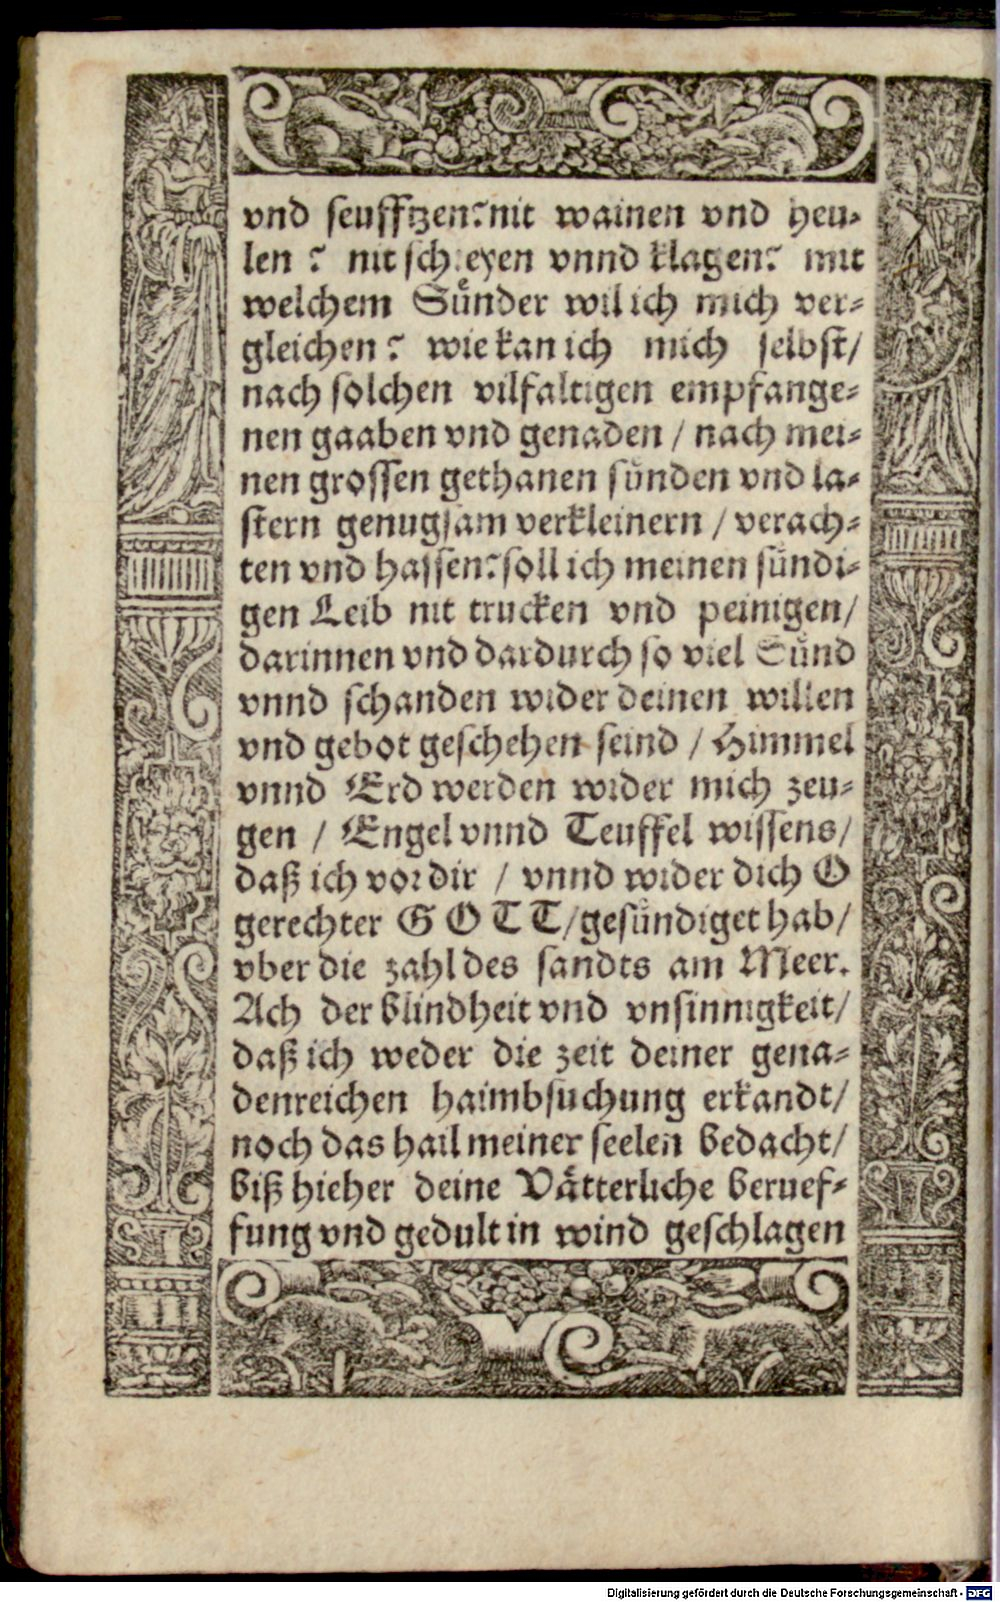 vnd seufftzen? nit wainen vnd heu-
len? nit schreyen vnnd klagen? mit
welchem Sünder wil ich mich ver-
gleichen? wie kan ich mich selbst/
nach solchen vilfaltigen empfange-
nen gaaben vnd genaden / nach mei-
nen grossen gethanen sünden vnd la-
stern genugsam verkleinern / verach-
ten vnd hassen? soll ich meinen sündi-
gen Leib nit trucken vnd peinigen/
darinnen vnd dardurch so viel Sünd
vnnd schanden wider deinen willen
vnd gebot geschehen seind / Himmel
vnnd Erd werden wider mich zeu-
gen / Engel vnnd Teuffel wissens/
daß ich vor dir / vnnd wider dich O
gerechter GOTT/ gesündiget hab/
vber die zahl des sandts am Meer.
Ach der blindheit vnd vnsinnigkeit/
daß ich weder die zeit deiner gena-
denreichen haimbsuchung erkandt/
noch das hail meiner seelen bedacht/
biß hieher deine Vätterliche beruef-
fung vnd gedult in wind geschlagen
Digitalisierung gefördert durch die Deutsche Forschungsgemeinschaft - DFG